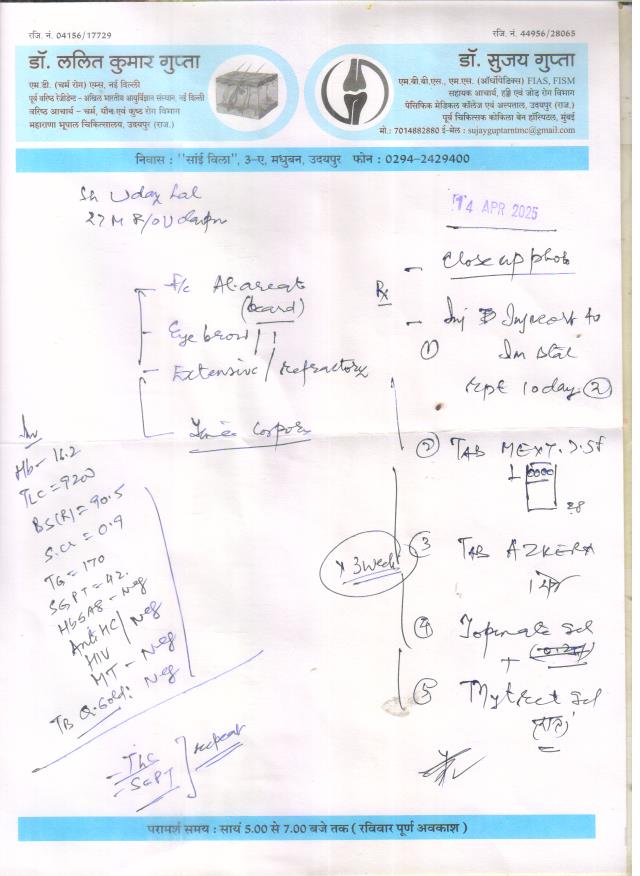 रजि. नं. 04156/17729
रजि. नं. 44956/28065
डॉ. ललित कुमार गुप्ता
एम.डी. (चर्म रोग) एम्स, नई दिल्ली
पूर्व वरिष्ठ रेजीडेन्ट - अखिल भारतीय आयुर्विज्ञान संस्थान, नई दिल्ली
वरिष्ठ आचार्य - चर्म, यौन एवं कुष्ठ रोग विभाग
महाराणा भूपाल चिकित्सालय, उदयपुर (राज.)
डॉ. सुजय गुप्ता
एम.बी.बी.एस., एम.एस. (ऑर्थोपेडिक्स) FIAS, FISM
सहायक आचार्य, हड्डी एवं जोड़ रोग विभाग
पेसिफिक मेडिकल कॉलेज एवं अस्पताल, उदयपुर (राज.)
पूर्व चिकित्सक कोकिला बेन हॉस्पिटल, मुंबई
मो.: 7014882880 ई-मेल : sujayguptarntmc@gmail.com
निवास : "सांई विला", 3-ए, मधुबन, उदयपुर फोन : 0294-2429400
Sh Uday Lal
27 M R/O
14 APR 2025
F/c Al. areata
(beard)
Eye brow
Extensive / refractory
Tinea Corporis
Inv
Hb - 16.2
TLC = 9200
BS(R) = 90.5
S.Cr = 0.9
TG = 170
SGPT = 42
HbSAg - Neg
Anti HC / Neg
HIV
MT - Neg
TB Q. Gold: Neg
SGPT
repeat
Rx
- Close up photo
- Inj
① Im Stat
rept 10 day ②
② TAB MEXT. 7.5
28
③ TAB AZKERA
x 3 week
④ Topinate Gel
+
⑤ Gel
परामर्श समय : सायं 5.00 से 7.00 बजे तक ( रविवार पूर्ण अवकाश )